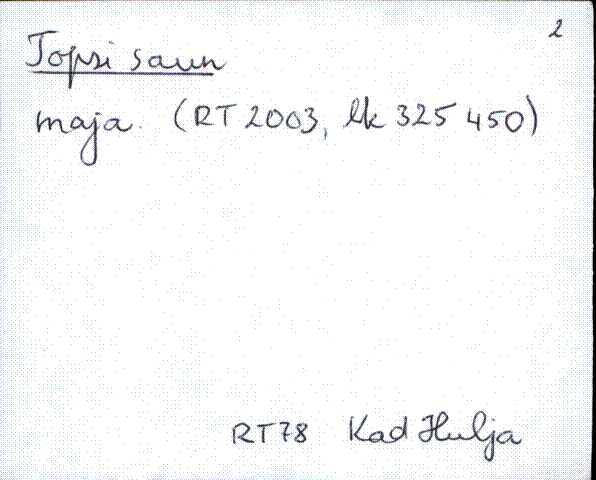 2
Topsi saun
maja. (RT 2003, lk 325 450)
RT78 Kad Hulja